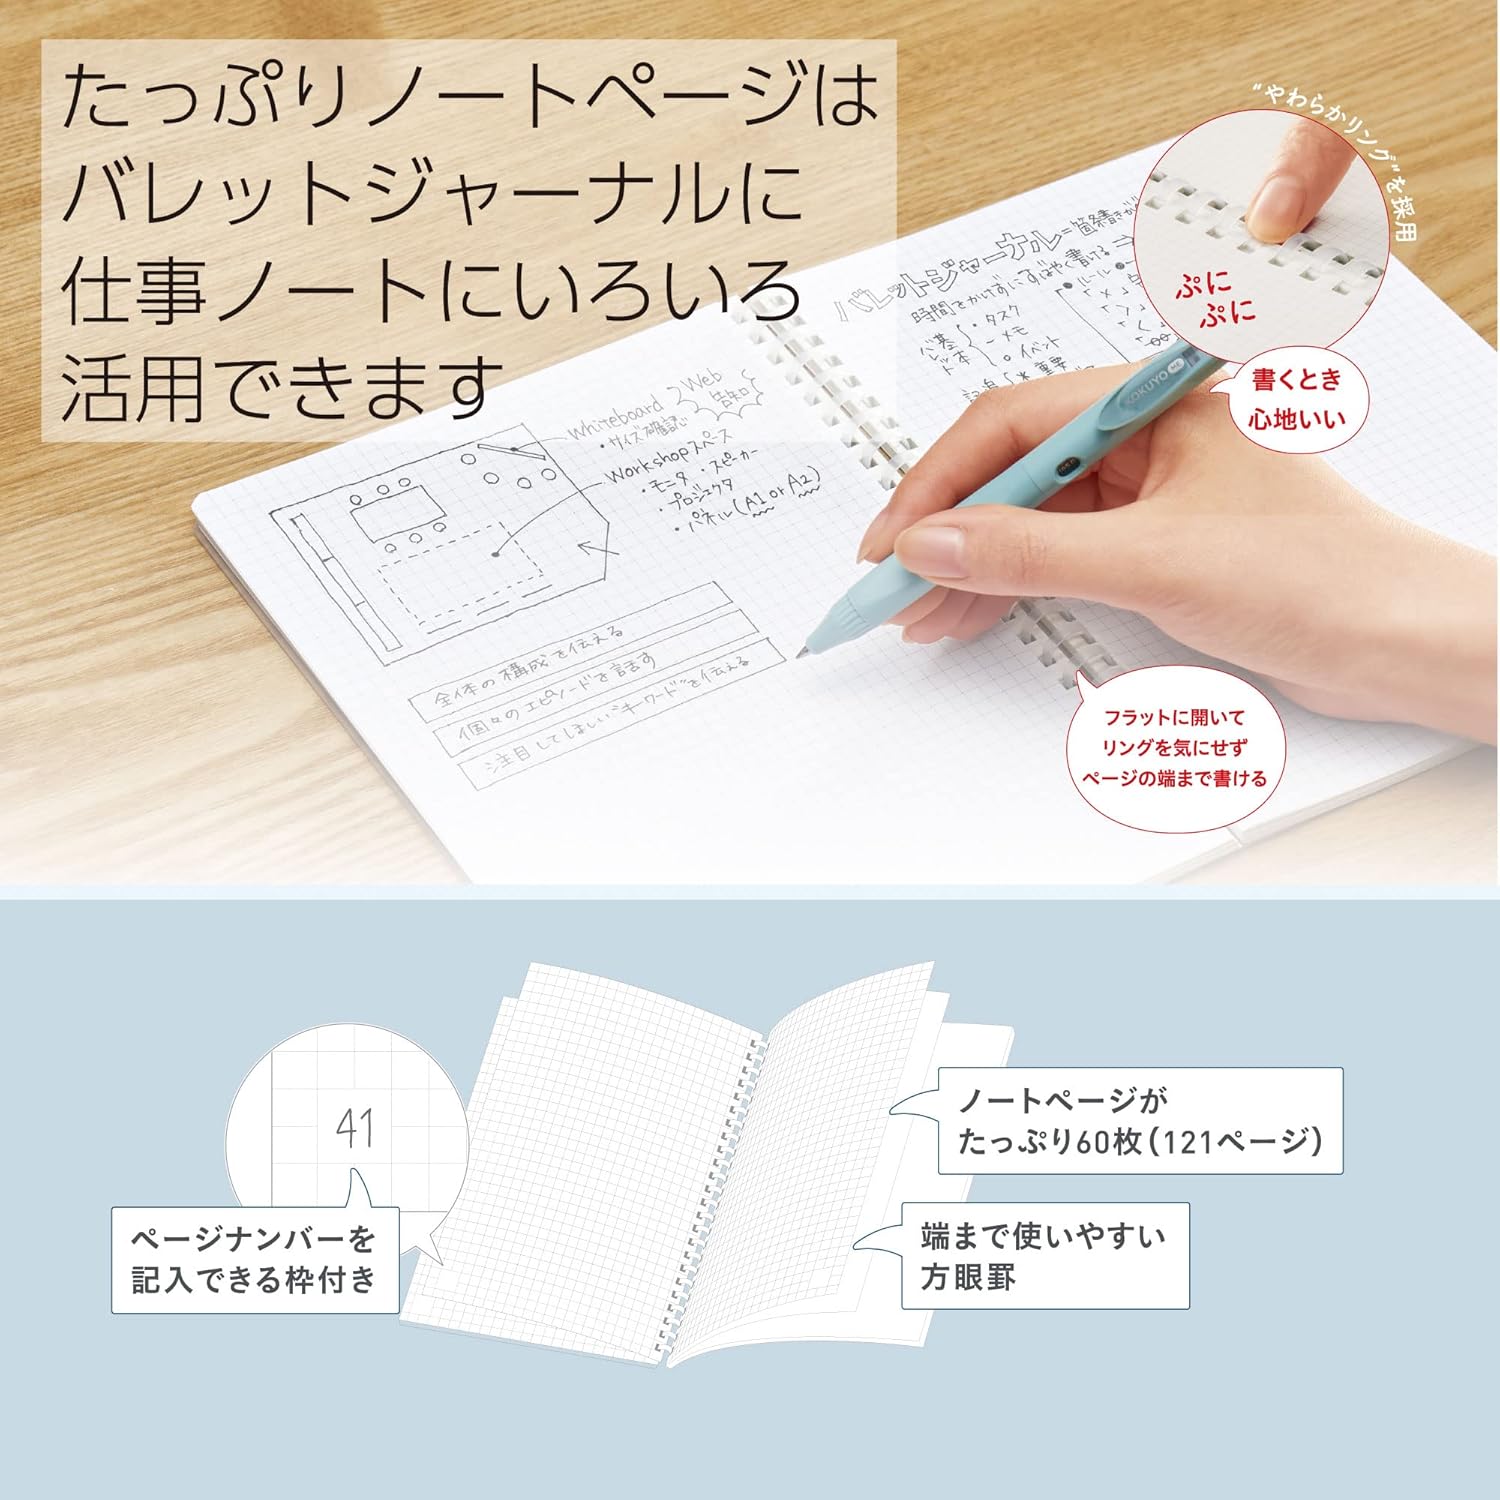 たっぷりノートページは
バレットジャーナルに
仕事ノートにいろいろ
活用できます
“やわらかリング”を採用
ぷに
ぷに
書くとき
心地いい
バレットジャーナル=箇条書き
時間をかけずにすばやく書ける→
・タスク
ーメモ
○イベント
基本
*重要
KOKUYO ME
Whiteboard
・サイズ確認
Web
告知
Workshopスペース
・モニタ ・スピーカー
・プロジェクタ
・パネル(A1 or A2)
全体の構成を伝える
個々のエピソードを話す
注目してほしい“キーワード”を伝える
フラットに開いて
リングを気にせず
ページの端まで書ける
41
ページナンバーを
記入できる枠付き
ノートページが
たっぷり60枚(121ページ)
端まで使いやすい
方眼罫